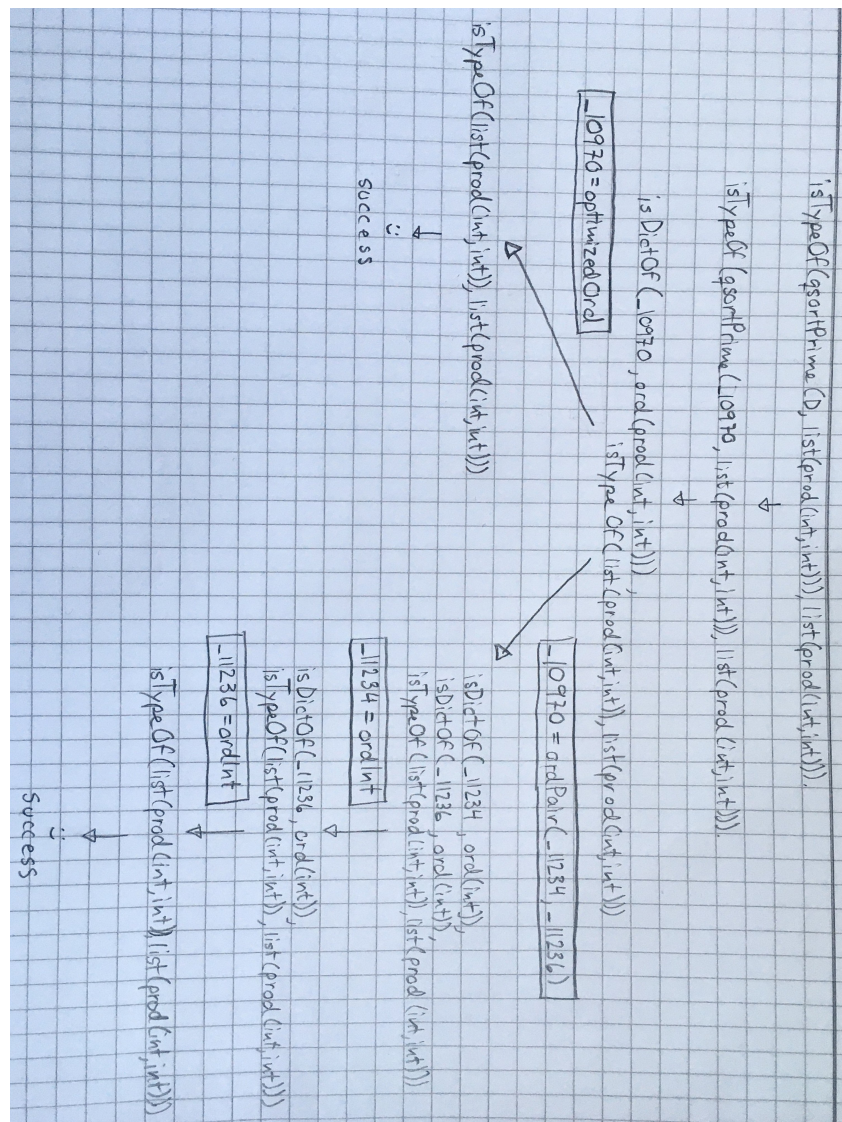 isTypeOf(qsortPrime(D, list(prod(int,int))), list(prod(int,int))).
isTypeOf(qsortPrime(_10970, list(prod(int,int))), list(prod(int,int))).
isDictOf(_10970, ord(prod(int,int))),
isTypeOf(list(prod(int,int)), list(prod(int,int)))
_10970 = optimizedOrd
isTypeOf(list(prod(int,int)), list(prod(int,int)))
:)
success
_10970 = ordPair(_11234, _11236)
isDictOf(_11234, ord(int)),
isDictOf(_11236, ord(int)),
isTypeOf(list(prod(int,int)), list(prod(int,int)))
_11234 = ordInt
isDictOf(_11236, ord(int)),
isTypeOf(list(prod(int,int)), list(prod(int,int)))
_11236 = ordInt
isTypeOf(list(prod(int,int)), list(prod(int,int)))
:)
success